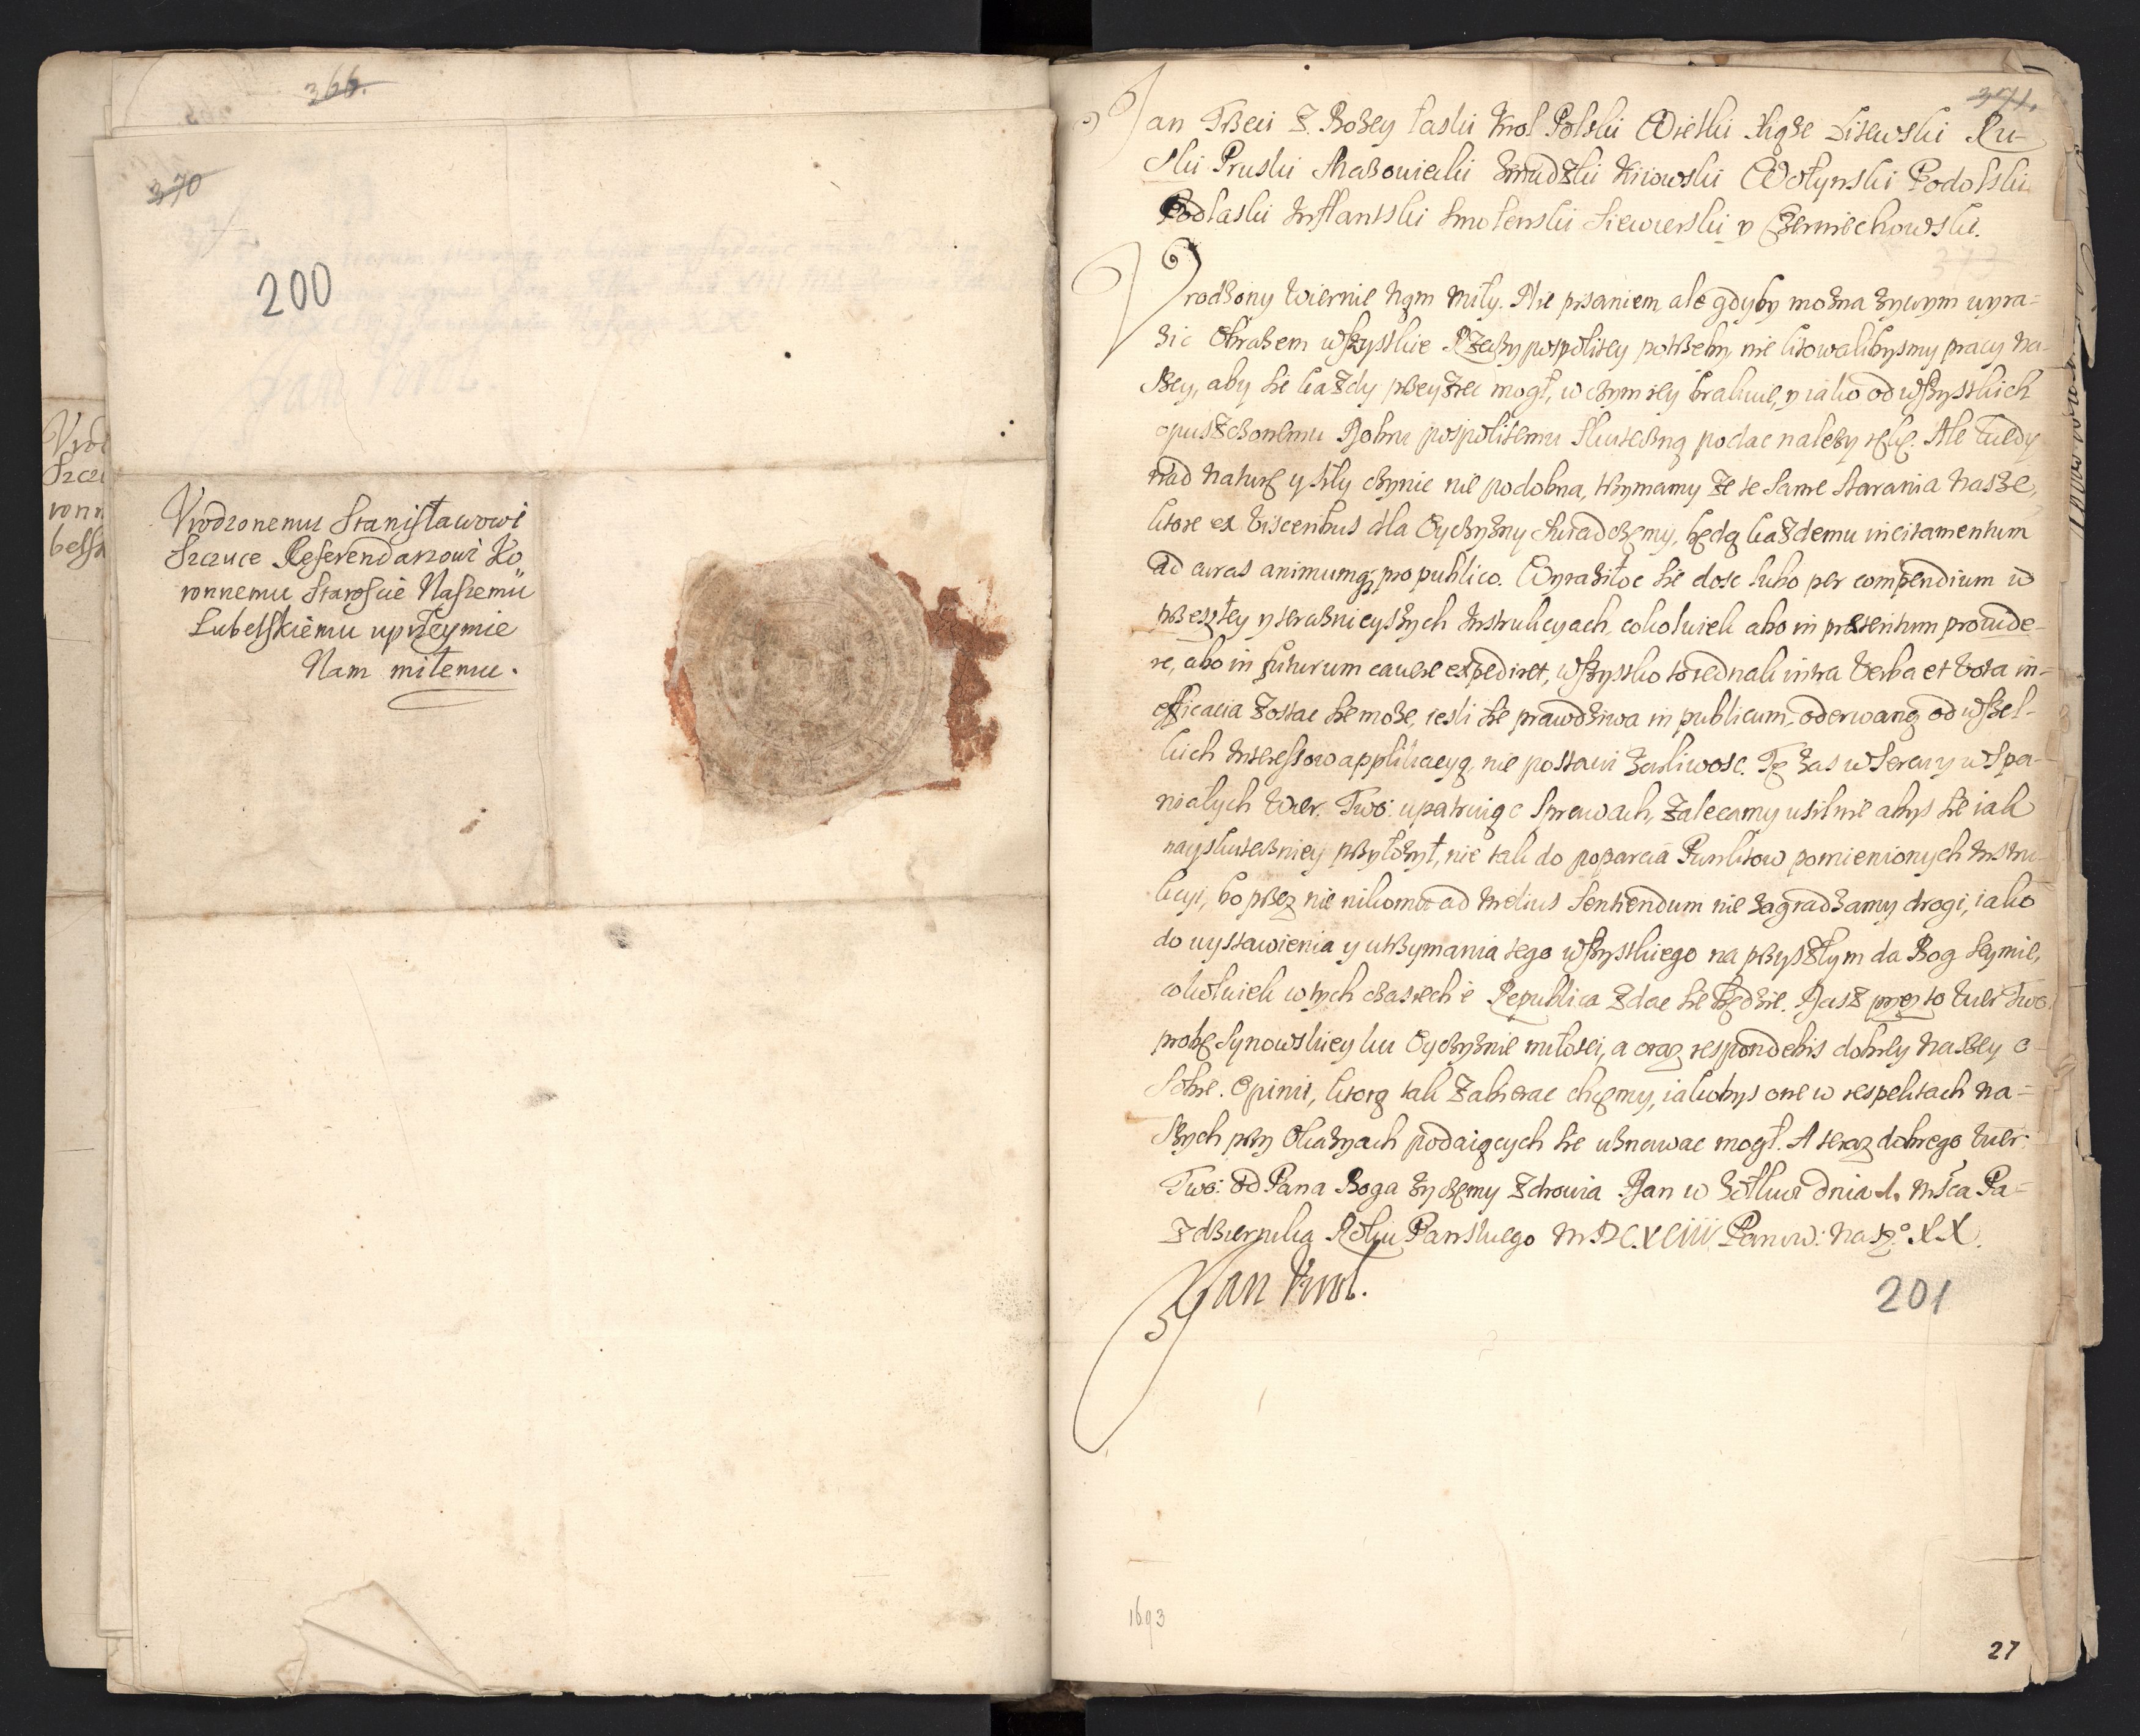 366.
370
200
Vrodzonemu Stanisławowi
Szczuce Referendarzowi Ko
ronnemu Staroscie Naszemu
Lubelskiemu uprzeymie
Nam miłemu.
371.
Jan Trzeci Z Bozey łaski Krol Polski Wielki Xiąze Litewski Ru-
ski Pruski Mazowiecki Zmudzki Kiiowski Wołynski Podolski
Podlaski Inflantski Smolenski Siewierski y Czerniechowski.
373
Vrodzony wiernie Nąm Miły. Nie pisaniem, ale gdyby mozna zywym wyra=
zic Obrazem wszystkie Rzeczypospolitey potrzeby, nie litowalibysmy pracy Na-
szey, aby sie kazdy przeyzrec mogł, w czym iey brakuie, y iako od wszystkich
opuszczonemu Dobru pospolitemu skuteczną podac nalezy rękę. Ale kiedy
nad naturę y siły czynic nie podobna, trzymamy ze te same starania Nasze,
ktore ex visceribus dla Oyczyzny swiadczęmy, będą kazdemu incitamentum
ad curas animumq; pro publico. Wyraziłoc sie dosc lubo per compendium w
przeszłey y teraznieyszych Instrukcyach, cokolwiek abo in præsentum provide-
re, abo in futurum cavere expediret, wszystko to iednak intra verba et vota in-
efficacia zostac sie moze, iesli sie prawdziwa in publicum, oderwaną od wszel-
kich Interessow applikacyą, nie postawi zarliwosc. Tę zas w Sercu y wspa-
niałych Wier. Two: upatruiąc sprawach, zalecamy usilnie abys sie iak
nayskuteczniey przyłozył, nie tak do poparcia Punktow pomienionych Instru-
kcyi, bo przez nie nikomu ad melius sentiendum nie zagradzamy drogi, iako
do wystawienia y utrzymania tego wszystkiego na przyszłym da Bog Seymie,
cokolwiek w tych czasiech è Republica zdac sie będzie. Dasz przez to Wier Two:
probę Synowskiey ku Oyczyznie miłosci, a oraz respondebis dobrey Naszey o
Sobie. Opinii, ktorą tak zabierac chcęmy, iakobys one w respektach Na=
szych przy Okazyach podaiących sie uznawac mogł. A teraz dobrego Wier:
Two: od Pana Boga zyczęmy zdrowia Dan w Zołkwi dnia 1. Msca Pa=
zdziernika Roku Panskiego MDCXCIII Panow: Naszº XX.
Jan Krol.
201
1693
27